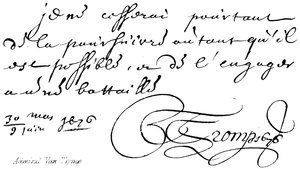 je ne cesserai pourtant
de la poursuivre autant qu'il
est possible, & de l'engager
a une bataille
30 may
9 juin 1676
CTromp 1676
Admiral Van Tromp